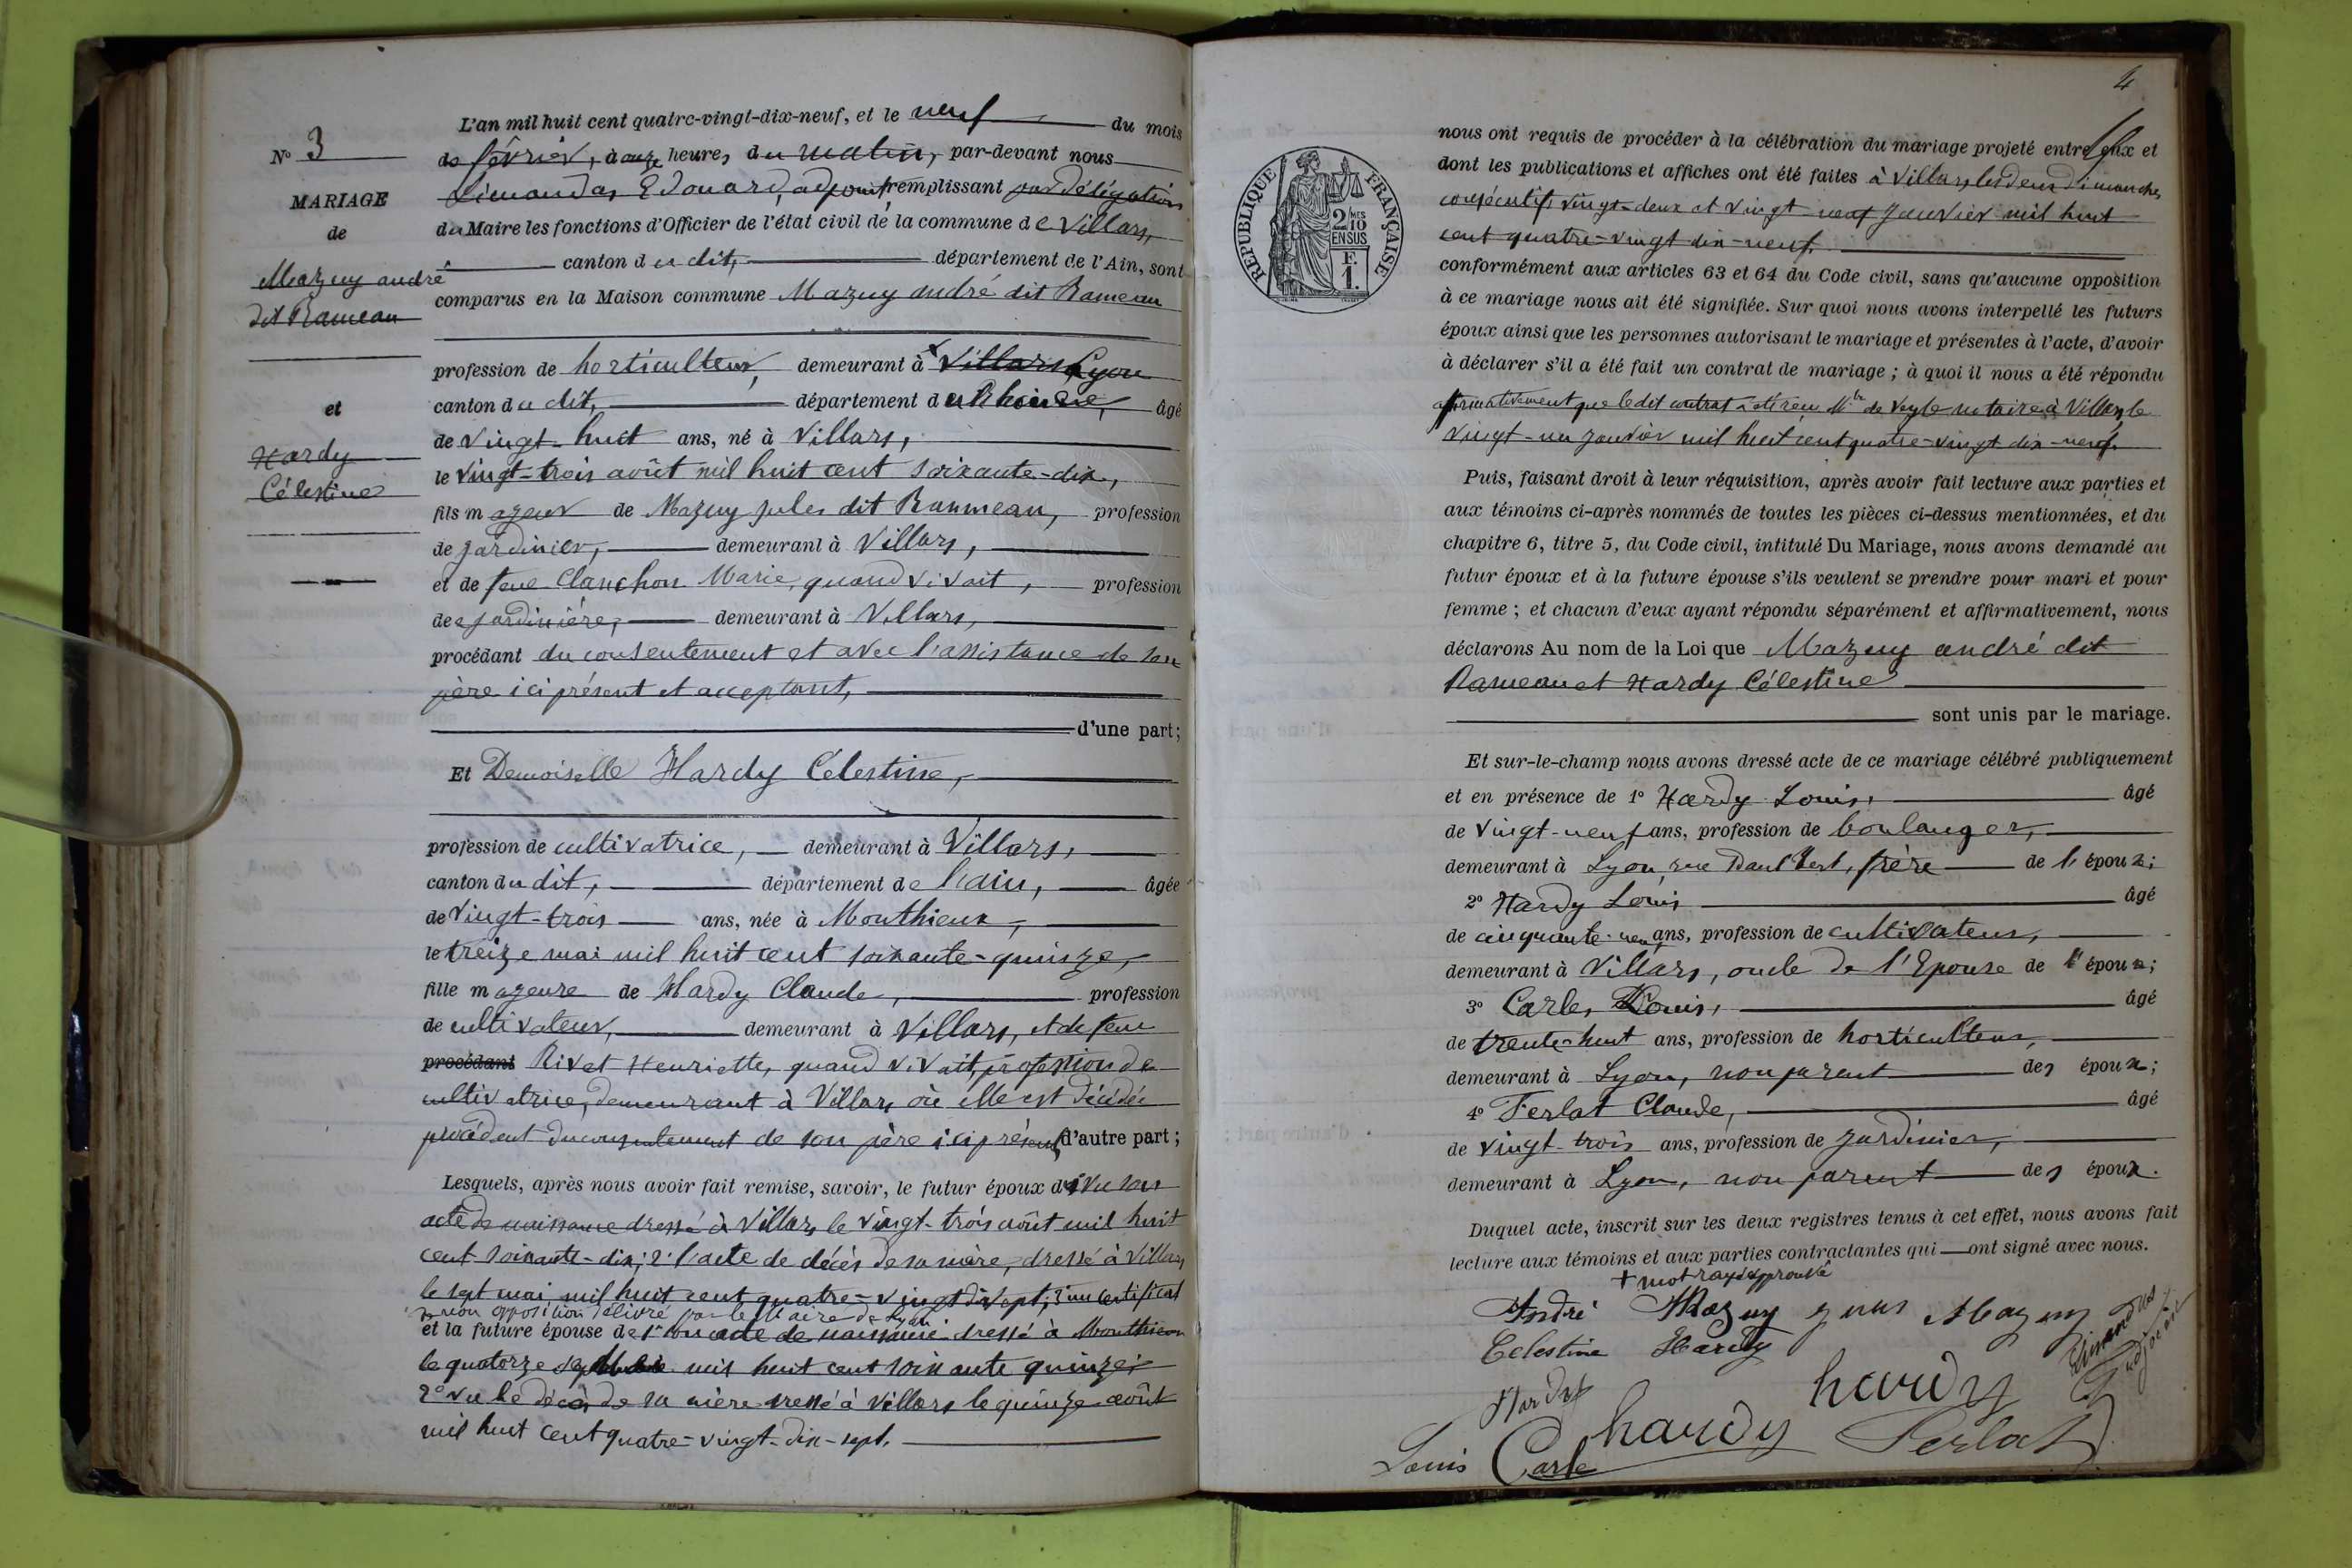 N° 3
MARIAGE
de
Mazuy andré
dit Rameau
et
Hardy
Célestine
L'an mil huit cent quatre-vingt-dix-neuf, et le neuf du mois
de février, à onze heures du matin, par-devant nous
Limandas Edouard, adjoint remplissant par délégation
du Maire les fonctions d'Officier de l'état civil de la commune de Villars,
canton du dit, département de l'Ain, sont
comparus en la Maison commune Mazuy andré dit Rameau
profession de horticulteur, demeurant à + Villars Lyon
canton du dit, département du Rhône, âgé
de vingt-huit ans, né à Villars,
le vingt-trois août mil huit cent soixante-dix,
fils mageur de Mazuy jules dit Rammeau, profession
de jardinier, demeurant à Villars,
et de feue Clanchon Marie, quand vivait, profession
de jardinière, demeurant à Villars,
procédant du consentement et avec l'assistance de son
père ici présent et acceptant,
d'une part;
Et Demoiselle Hardy Célestine,
profession de cultivatrice, demeurant à Villars,
canton du dit, département de l'ain, âgée
de vingt-trois ans, née à Monthieux,
le treize mai mil huit cent soixante-quinze,
fille mageure de Hardy Claude, profession
de cultivateur, demeurant à Villars, et de feue
procédant Rivet Henriette, quand vivait, profession de
cultivatrice, demeurant à Villars où elle est décédée
procédent du consentement de son père ici présent, d'autre part;
Lesquels, après nous avoir fait remise, savoir, le futur époux vu son
acte de naissance dressé à Villars le vingt-trois août mil huit
cent soixante-dix; 2° l'acte de décès de sa mère, dressé à Villars
le sept mai mil huit cent quatre-vingt dix sept; 3° un certificat
de non opposition délivré par le Maire de Lyon
et la future épouse de 1° son acte de naissance dressé à Monthieux
le quatorze mil huit cent soixante quinze;
2° vu le décès de sa mère dressé à Villars le quinze août
mil huit cent quatre-vingt-dix-sept.
4
RÉPUBLIQUE FRANÇAISE
2 MES 10
EN SUS
F.
1.
nous ont requis de procéder à la célébration du mariage projeté entre eux et
dont les publications et affiches ont été faites à Villars, les deux dimanches
consécutifs vingt-deux et vingt neuf janvier mil huit
cent quatre-vingt dix-neuf.
conformément aux articles 63 et 64 du Code civil, sans qu'aucune opposition
à ce mariage nous ait été signifiée. Sur quoi nous avons interpellé les futurs
époux ainsi que les personnes autorisant le mariage et présentes à l'acte, d'avoir
à déclarer s'il a été fait un contrat de mariage; à quoi il nous a été répondu
affirmativement que le dit contrat a été reçu de Veyle notaire à Villars, le
vingt-un janvier mil huit cent quatre-vingt dix-neuf.
Puis, faisant droit à leur réquisition, après avoir fait lecture aux parties et
aux témoins ci-après nommés de toutes les pièces ci-dessus mentionnées, et du
chapitre 6, titre 5, du Code civil, intitulé Du Mariage, nous avons demandé au
futur époux et à la future épouse s'ils veulent se prendre pour mari et pour
femme; et chacun d'eux ayant répondu séparément et affirmativement, nous
déclarons Au nom de la Loi que Mazuy andré dit
Rameau et Hardy Célestine
sont unis par le mariage.
Et sur-le-champ nous avons dressé acte de ce mariage célébré publiquement
et en présence de 1° Hardy Louis, âgé
de vingt-neuf ans, profession de boulanger,
demeurant à Lyon, rue Paul Bert, frère de l'épouz;
2° Hardy Louis âgé
de cinquante-neuf ans, profession de cultivateur,
demeurant à Villars, oncle de l'Epouse de l'époux;
3° Carle, Louis, âgé
de trente-huit ans, profession de horticulteur,
demeurant à Lyon, non parent des époux;
4° Ferlat Claude, âgé
de vingt-trois ans, profession de jardinier,
demeurant à Lyon, non parent des époux.
Duquel acte, inscrit sur les deux registres tenus à cet effet, nous avons fait
lecture aux témoins et aux parties contractantes qui ont signé avec nous.
+ mot rayé approuvé
André Mazuy jules Mazuy
Celestine Hardy
Limandas
adjoint
Hardy
hardy
hardy
Louis Carle
Ferlat